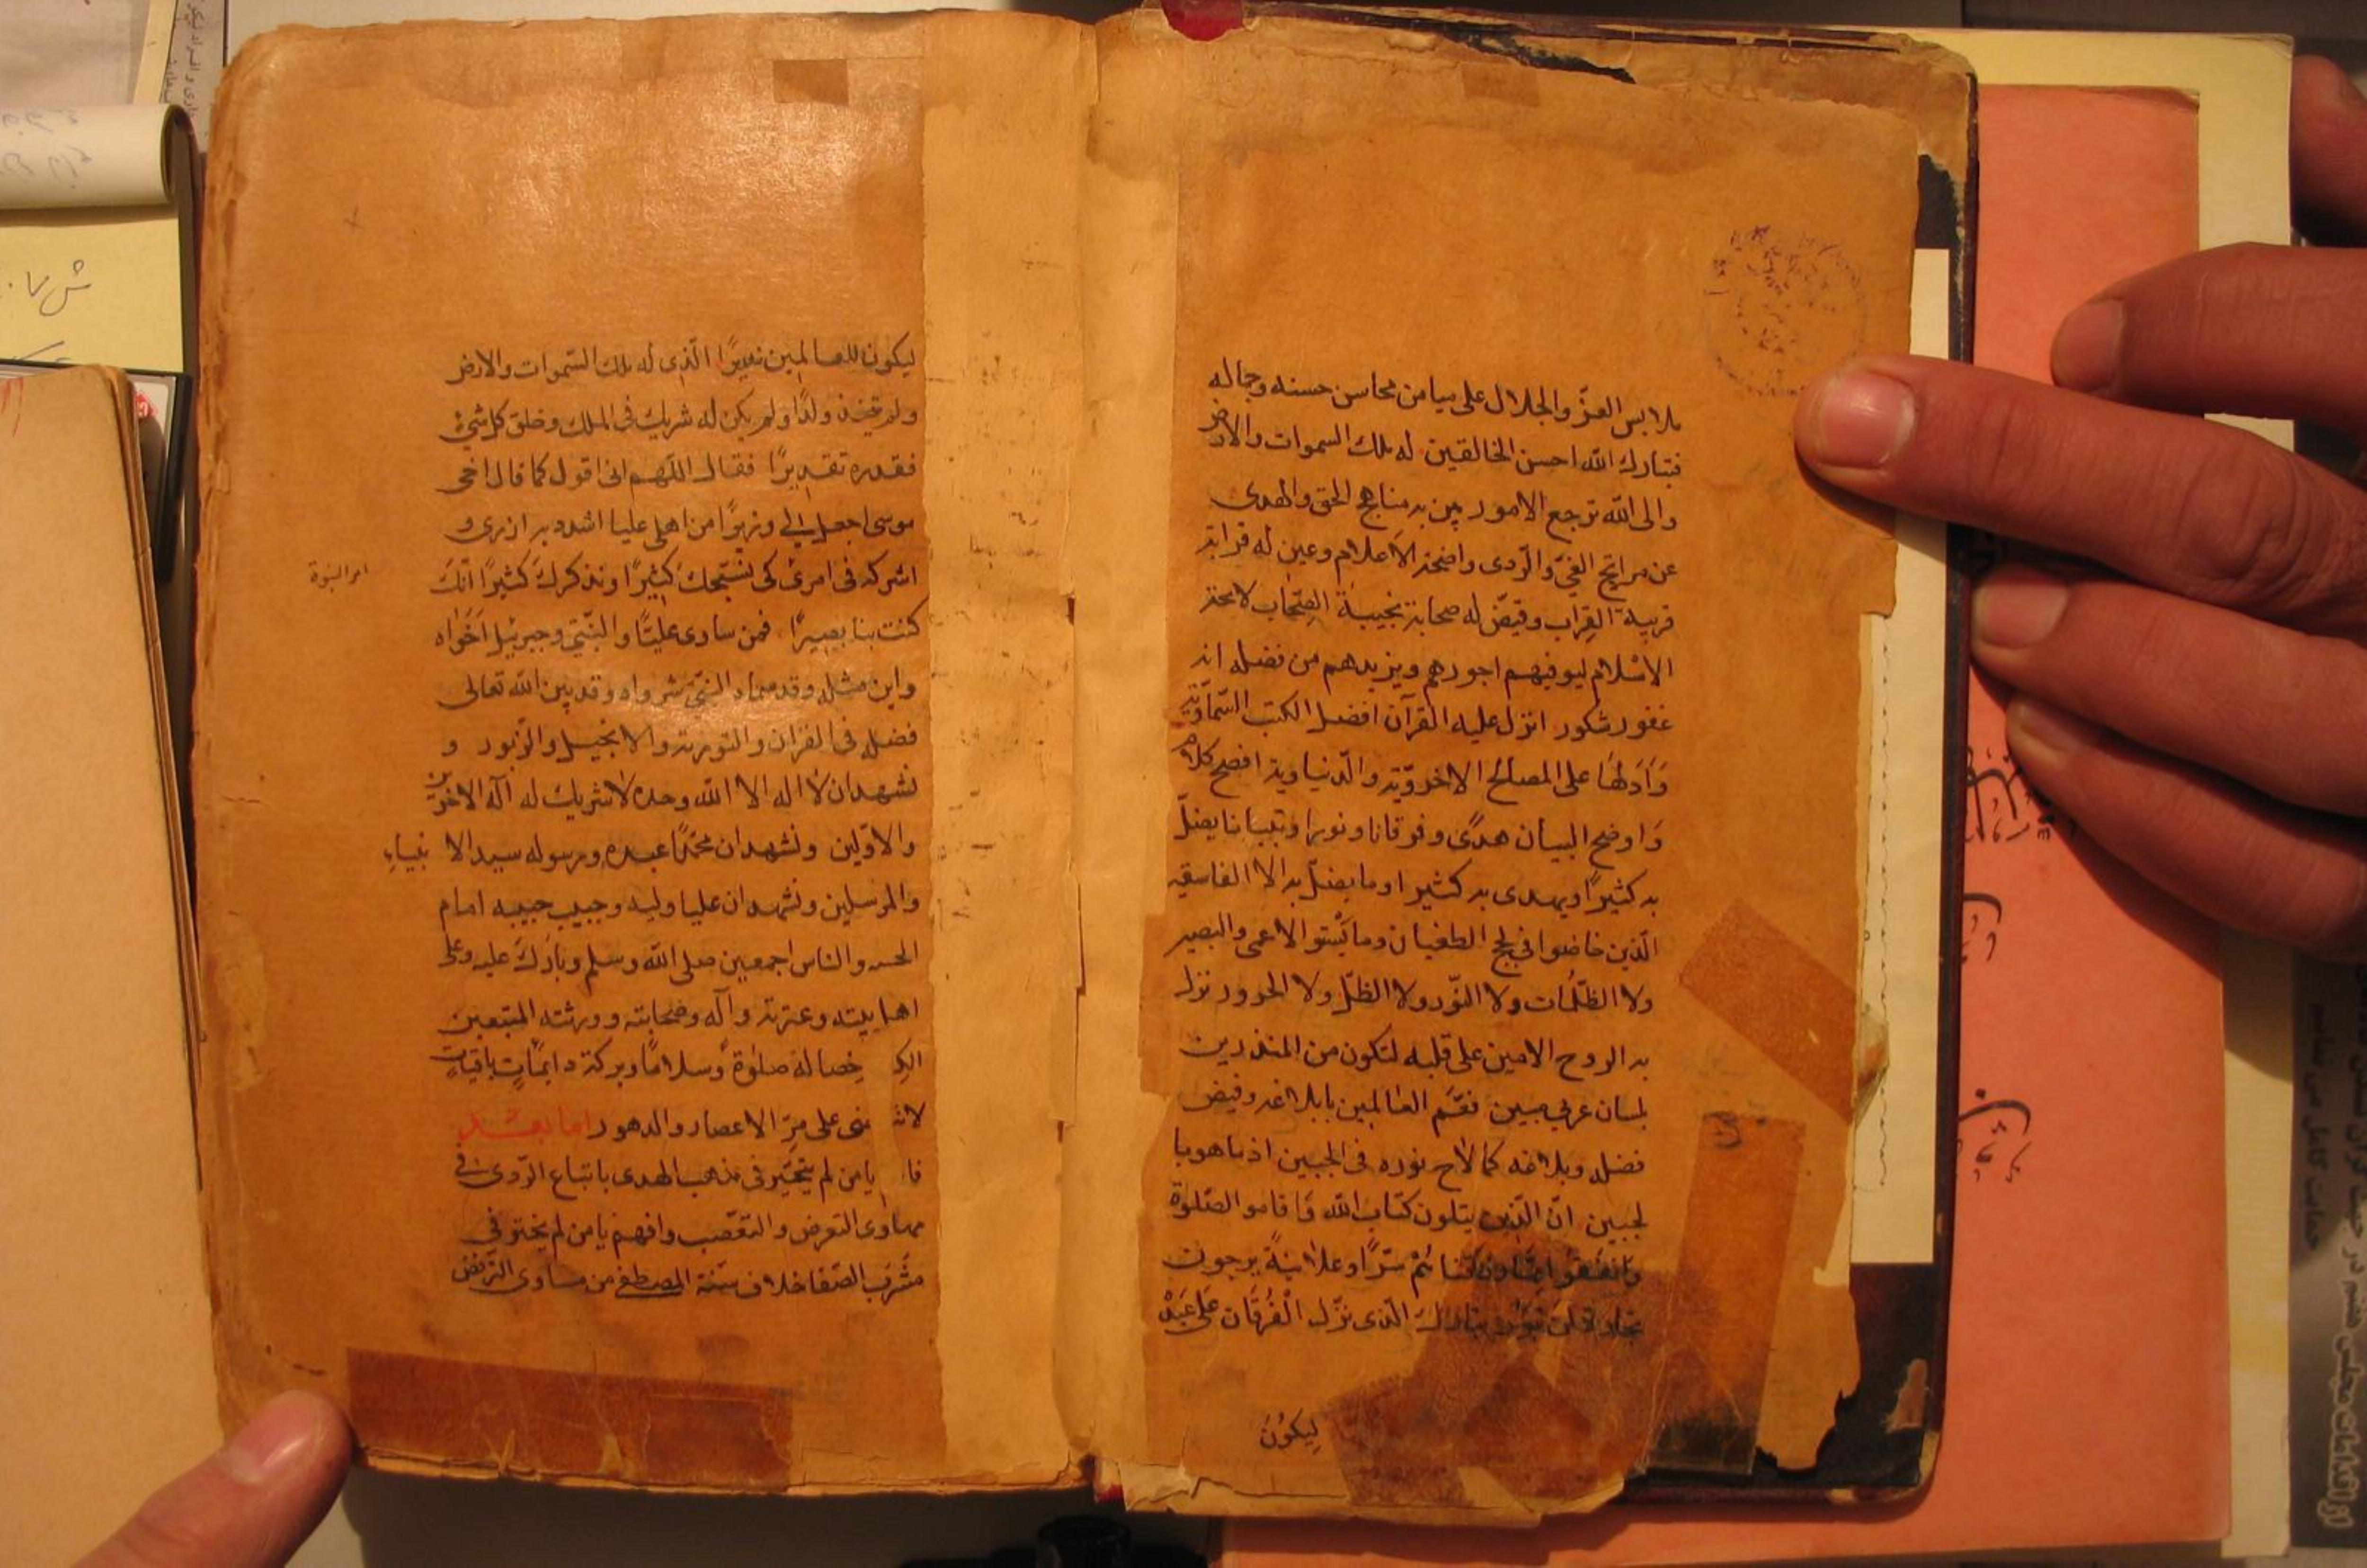 ملابس العزّ والجلال على ميامن محاسن حسنه وجماله
فتبارك الله احسن الخالقين له ملك السموات والارض
والى الله ترجع الامور بين به مناهج الحق والهدى
عن مراتج الغيّ والرّدى واضحة الاعلام وعين له قرابة
قريبة القِراب وقيّض له صحابة نجيبة الصّحاب لامحة
الاسْلام ليوفيهم اجورهم ويزيدهم من فضله انه
غفور شكور انزل عليه القرآن افضل الكتب السّماويّة
وَاَدَلّهَا على المصالح الاخرويّة والدّنياوية افصح كلام
وَاوضح البيان هدًى وفرقانا ونورا وتبيانا يضلّ
به كثيرًا ويهدى به كثيرا وما يضلّ به الا الفاسقين
الّذين خاضوا في لجج الطغيان وما يَسْتو الاعمى والبصير
ولا الظّلُمات ولا النّور ولا الظلّ ولا الحرور نزل
به الروح الامين على قلبه لتكون من المنذرين
بلسان عربي مبين فعَمّ العٰالمين بابلاغه وفيض
فضله وبلاغه كما لاح نوره فى الجبين اذ ما هو با
لجبين انّ الّذين يتلون كتاب الله وَاقاموا الصّلوة
وَانفَقوا ممّا رزقنا هُمْ سرًّا وعلانيةً يرجون
تجارة لن تبور تبارك الّذى نزّل الْفُرقَان عَلى عَبْدِه
لِيكُونَ
ليكون للعالمين نذيرًا الّذى له ملك السّموات والارض
ولم يتّخذ ولدًا ولم يكن له شريك فى الملك وخلق كل شئ
فقدره تقديرًا فقال اللّهم انى اقول كما قال اخى
موسى اجعل لى وزيرًا من اهلى عليا اشدد به ازرى و
اشركه فى امرى كى نسَبّحك كثيرًا ونذكركَ كثيرًا انّك
امر النبوة
كنت بنا بصيرًا فمن ساوى عليًّا والنّبىّ وجبرئيل اَخَوٰاه
واين مثله وقد سماه النبىّ شرواه وقد بين الله تعالى
فضله فى القران والتوريٰة والانجيل والزبور و
نشهد ان لا اله الا الله وحده لا شريك له اله الاخرين
والاوّلين ونشهد ان محمّدًا عبده ورسوله سيد الانبياءِ
والمرسلين ونشهد ان عليا وليه وحبيب حبيبه امام
الجنه والناس اجمعين صلى الله وسلم وبارك عليه وعلى
اهل بيته وعترته وآله وصحابته وورثته المتبعين
خصاله صلوٰة وسلامًا وبركة دايمًاتٍ باقياتٍ
على مرّ الاعصار والدهور اما بعد
يا من لم يتحيّر فى مذهب الهدى باتباع الرّدى فى
مهاوى التعرض والتعصّب وافهم يا من لم يختر فى
مشرب الصّفا خلاف سنّة المصطفى من مساوى الترفض